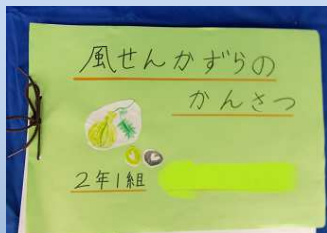 風せんかずらの
かんさつ
2年1組